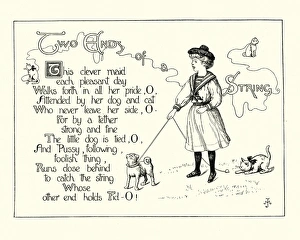 Two Ends of a String
This clever maid
each pleasant day
Walks forth in all her pride, O,
Attended by her dog and cat
Who never leave her side, O -
For by a tether
strong and fine
The little dog is tied, O,
And Pussy, following,
foolish thing,
Runs close behind
to catch the string
Whose
other end holds Fid-O!